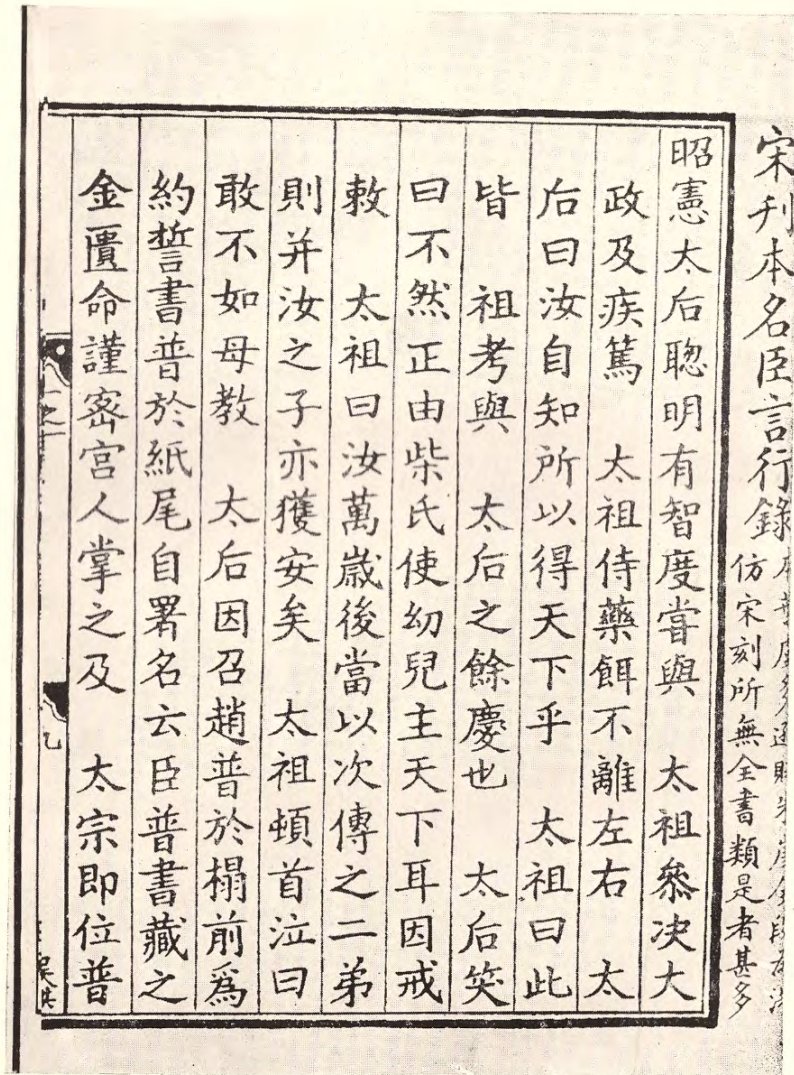 宋刊本名臣言行錄
仿宋刻所無全書類是者甚多
昭憲太后聦明有智度嘗與　太祖叅决大
政及疾篤　太祖侍藥餌不離左右　太
后曰汝自知所以得天下乎　太祖曰此
皆　祖考與　太后之餘慶也　太后笑
曰不然正由柴氏使幼兒主天下耳因戒
敕　太祖曰汝萬歲後當以次傳之二弟
則并汝之子亦獲安矣　太祖頓首泣曰
敢不如母教　太后因召趙普於榻前爲
約誓書普於紙尾自署名云臣普書藏之
金匱命謹宻宫人掌之及　太宗即位普
九